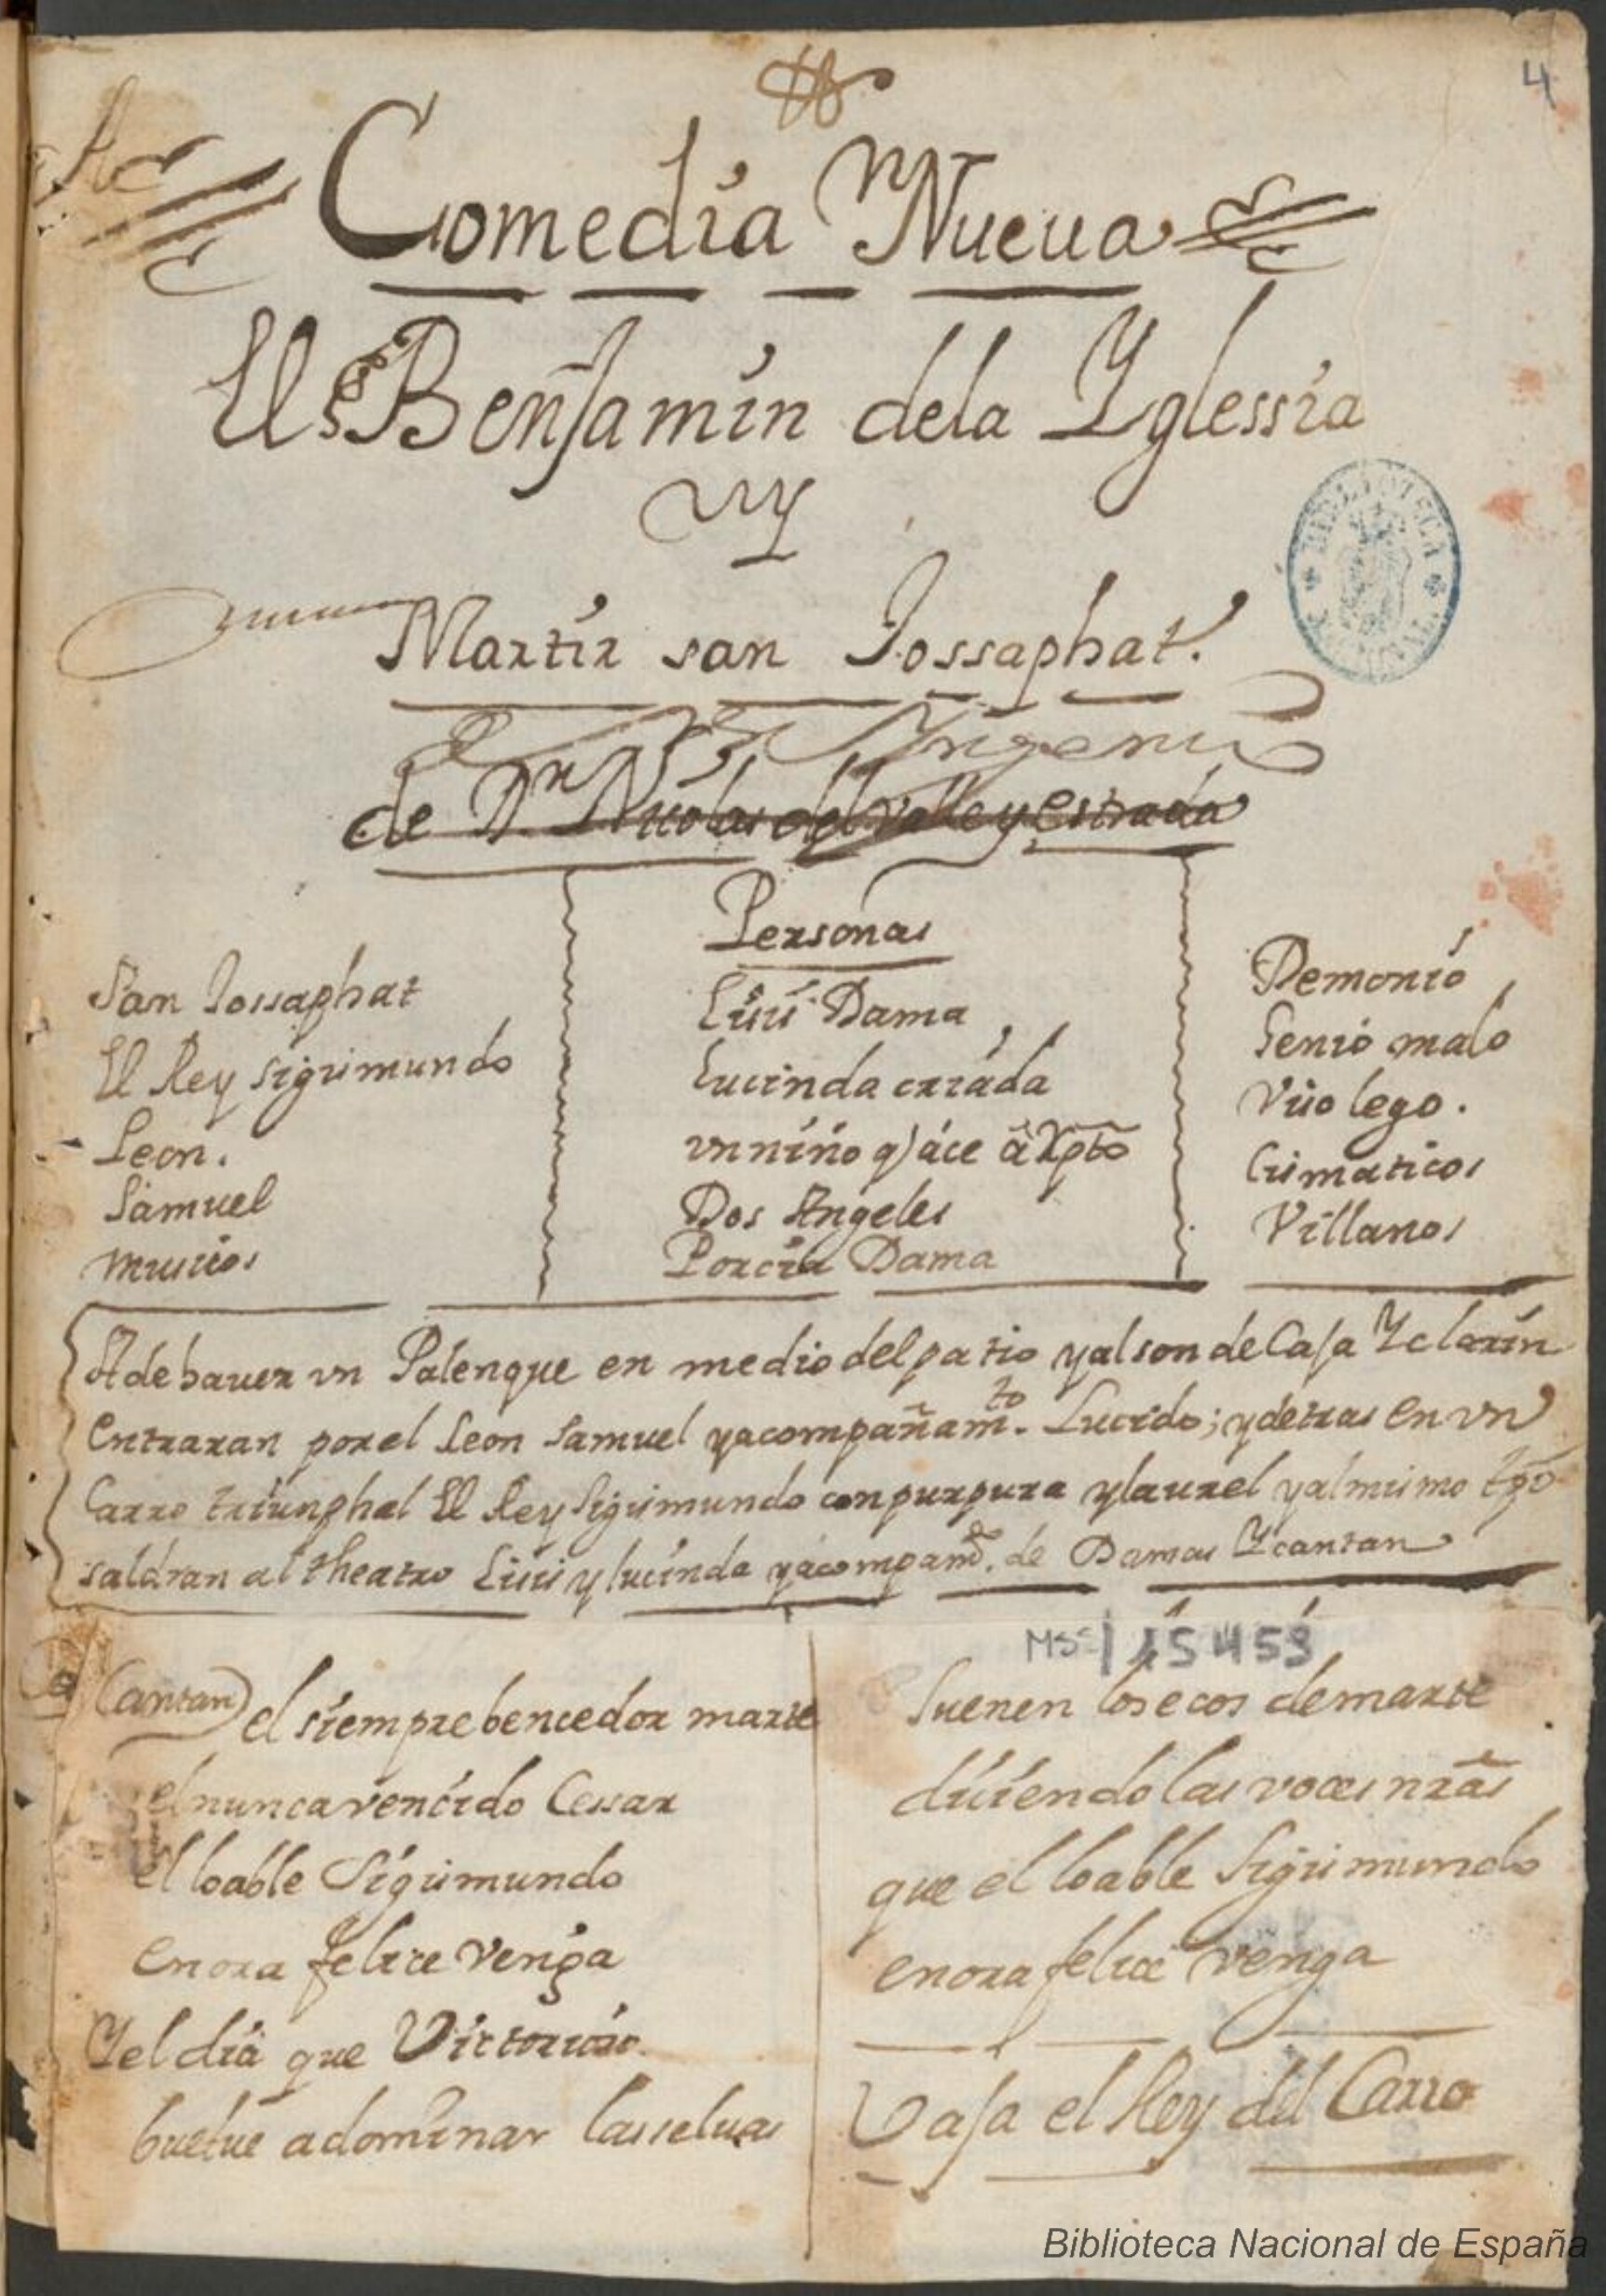 4
Comedia Nueua
El Benjamin dela Yglessia
y
Martir san Jossaphat.
Yngenio
de Dn Nicolas del valle y estrada
Personas
San Jossaphat
El Rey sigismundo
Leon.
Samuel
Musicos
Lisis Dama
Lucinda criáda
vn niño q áce â Xpto
Dos Angeles
Porcia Dama
Demonio
Genio malo
Viso lego.
Cismaticos
Villanos
A de hauer vn Palenque en medio del patio y al son de Caja Y clarin
entraran por el Leon Samuel y acompañamto. Lucido; y detras en vn
Carro triunphal El Rey Sigismundo con purpura y laurel y al mismo tpo
saldran al theatro Lisis y lucinda y acompamto. de Damas Y cantan
Mss/ 15453
Cantan el siempre bencedor marte
el nunca vencido Cessar
el loable Sigismundo
en ora felice venga
Y el dia que Victorioso
buelue a dominar las seluas
Suenen los ecos de marte
diciendo las voces nrãs
que el loable Sigismundo
en ora felice venga
Vaja el Rey del Carro
BIBLIOTECA NACIONAL
Biblioteca Nacional de España